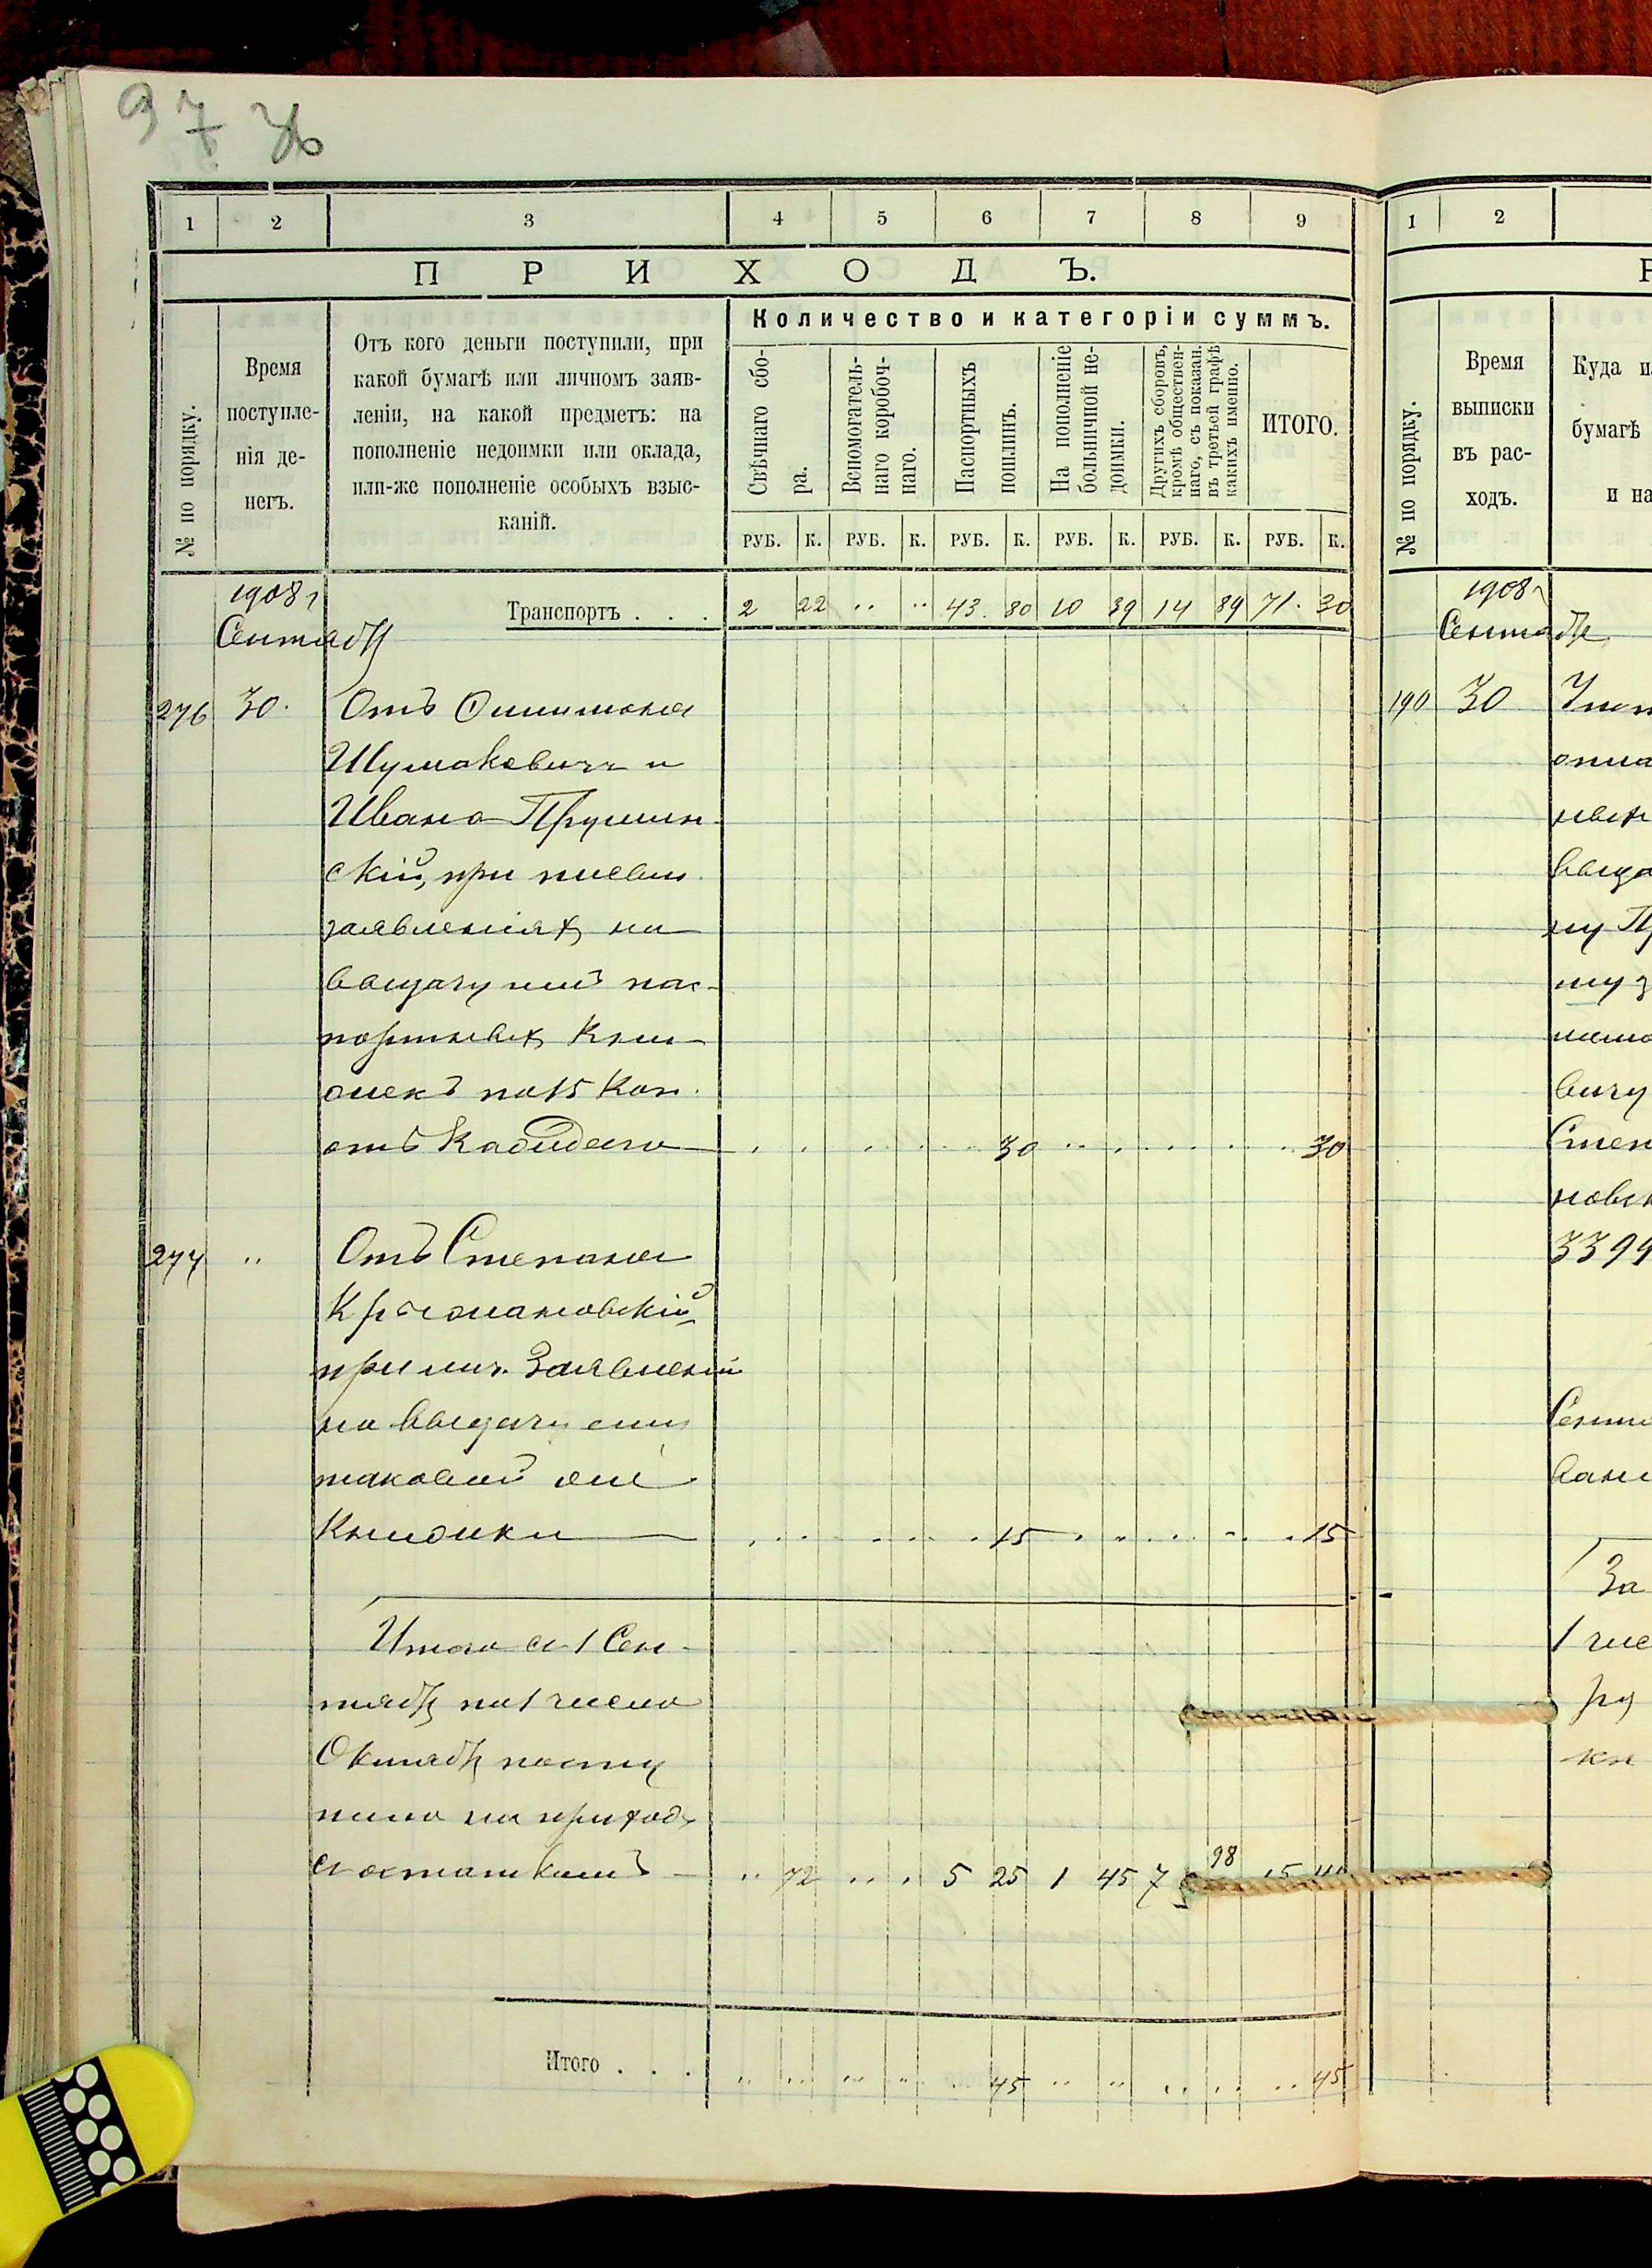 97
1 2 3 4 5 6 7 8 9
ПРИХОДЪ.
№ по порядку.
Время
поступле-
нія де-
негъ.
Отъ кого деньги поступили, при
какой бумагѣ или личномъ заяв-
леніи, на какой предметъ: на
пополненіе недоимки или оклада,
или-же пополненіе особыхъ взыс-
каній.
Количество и категоріи суммъ.
Свѣчнаго сбо-
ра.
Вспомогатель-
наго коробоч-
наго.
Паспортныхъ
пошлинъ.
На пополненіе
больничной не-
доимки.
Другихъ сборовъ,
кромѣ обществен-
наго, съ показан.
въ третьей графѣ
какихъ именно.
ИТОГО.
РУБ. К. РУБ. К. РУБ. К. РУБ. К. РУБ. К. РУБ. К.
1908 г
Транспортъ . . . 2 22 " " 43. 80 10 39 14 89 71. 30
Сентябр
276 30. Отъ
Шумаковичъ и
Ивана Прушин-
скій, при
заявленіях на
выдачу имъ пас-
портных кни-
жекъ по 15 коп.
отъ каждаго 30 30
277 " Отъ Степана
Крыжановскій
при пись. заявленіи
на выдачу ему
таковой же
книжки 15 15
Итого съ 1 Сен-
тябр по 1 число
Октябр посту
пило на приход
съ остаткомъ " 72 " " 5 25 1 45 7 98 15
Итого . . . " " " " 45 " " " " " 45
1 2
№ по порядку.
Время
выписки
въ рас-
ходъ.
Куда и
бумагѣ
и на
1908 г
Сентябр
190 30
выда
ну П
му
вичу
Степ
новск
3399
За
1 чис
ру